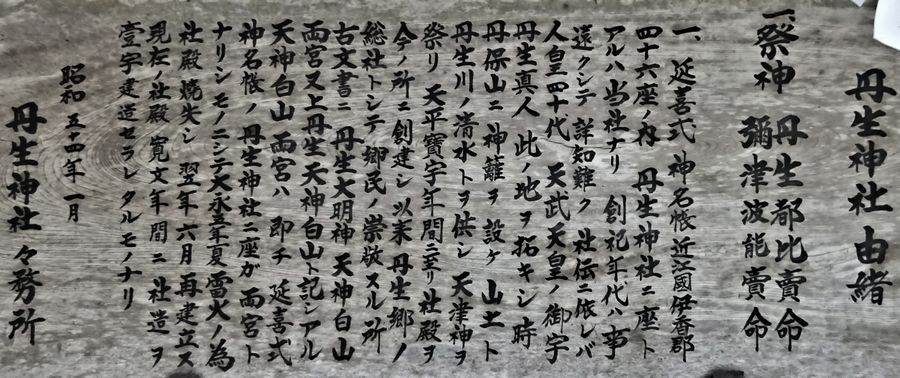 丹生神社由緒
一、祭神 丹生都比賣命
彌津波能賣命
一、延喜式神名帳近江國伊香郡
四十六座ノ内 丹生神社二座ト
アルハ当社ナリ 創祀年代ハ事
遠クシテ詳知難ク 社伝ニ依レバ
人皇四十代 天武天皇ノ御宇
丹生真人 此ノ地ヲ拓キシ時
丹保山ニ神籬ヲ設ケ 山土ト
丹生川ノ清水トヲ供シ 天津神ヲ
祭リ 天平寶宇年間ニ至リ社殿ヲ
今ノ所ニ創建シ 以来 丹生郷ノ
総社トシテ郷民ノ崇敬スル所
古文書ニ 丹生大明神 天神白山
両宮又上丹生天神白山ト記シアル
天神白山 両宮ハ 即チ 延喜式
神名帳ノ 丹生神社二座ガ 両宮ト
ナリシモノニシテ大永五年夏雷火ノ為
社殿焼失シ 翌年六月 再建立ス
現在ノ社殿 寛文年間ニ 社造ヲ
壹宇建造セラレタルモノナリ
昭和 五十四年 一月
丹生神社々務所